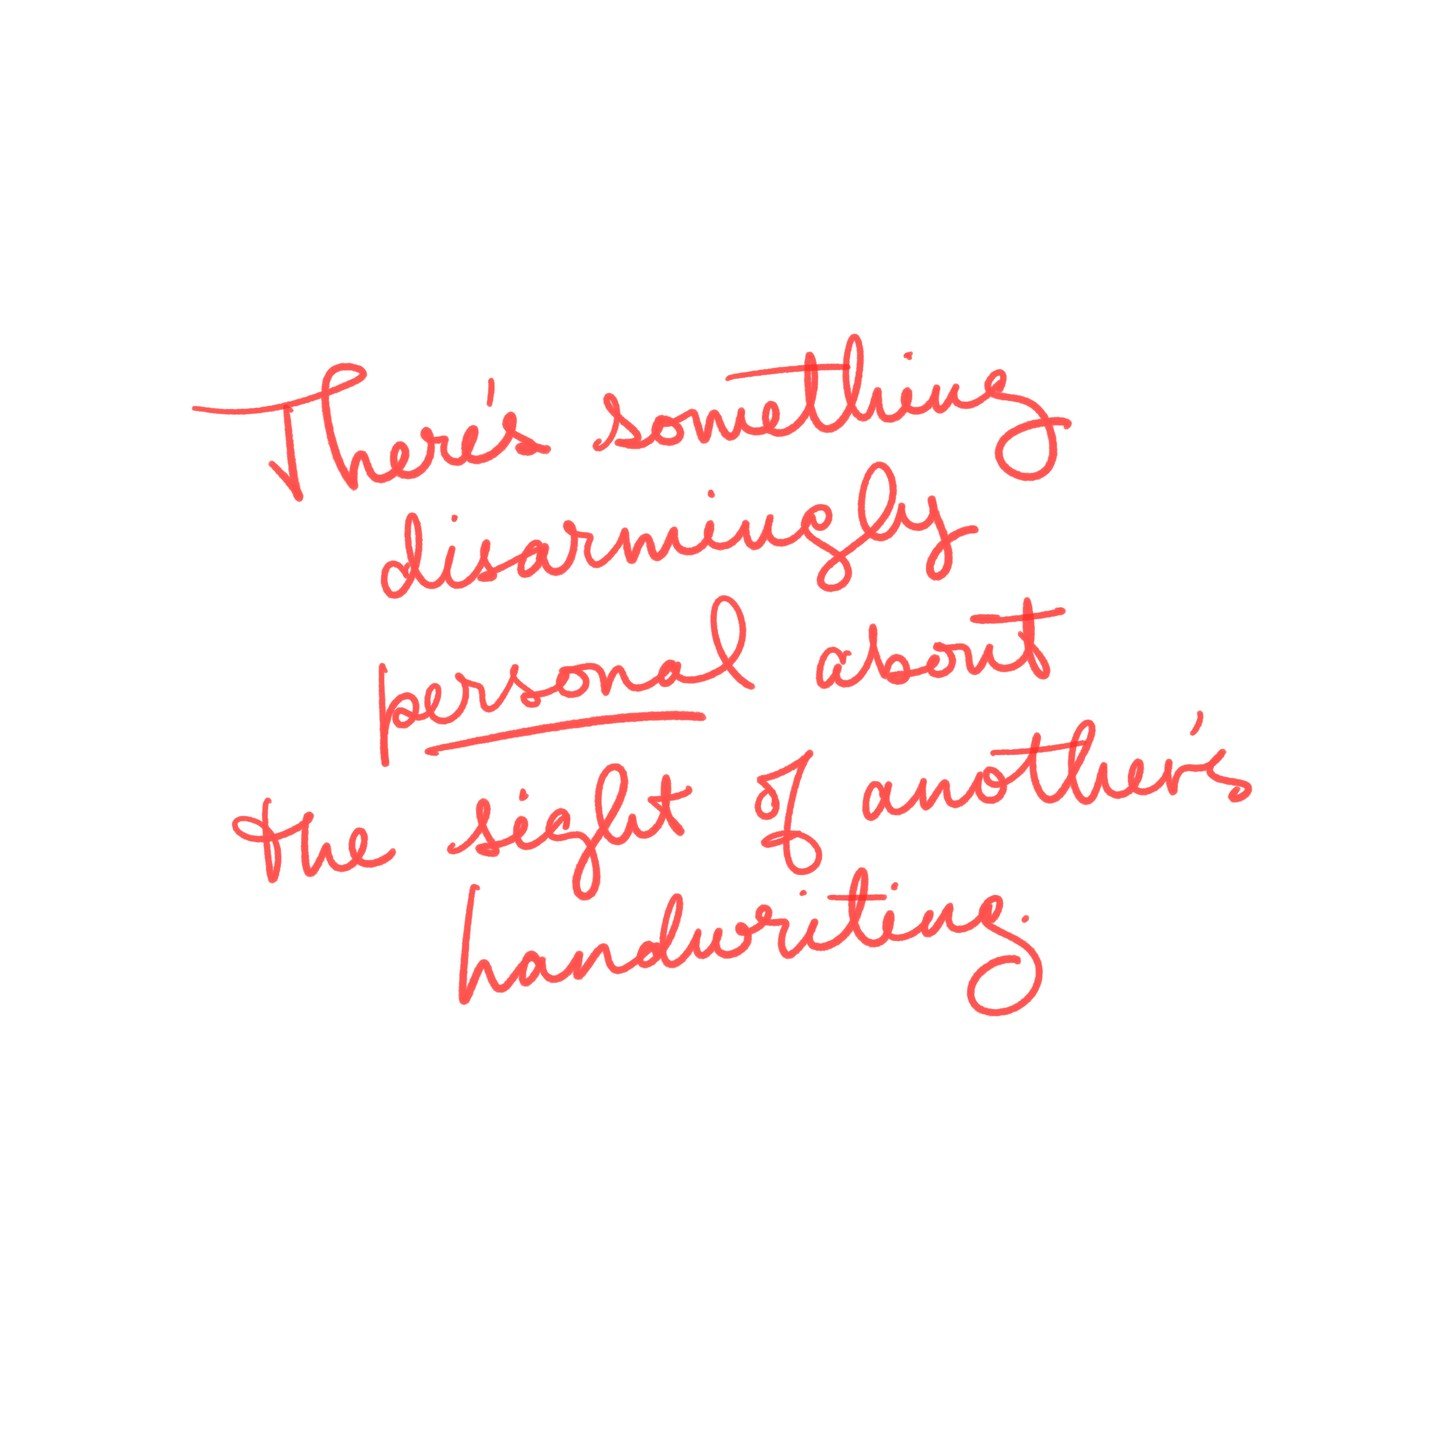 There's something
disarmingly
personal about
the sight of another's
handwriting.